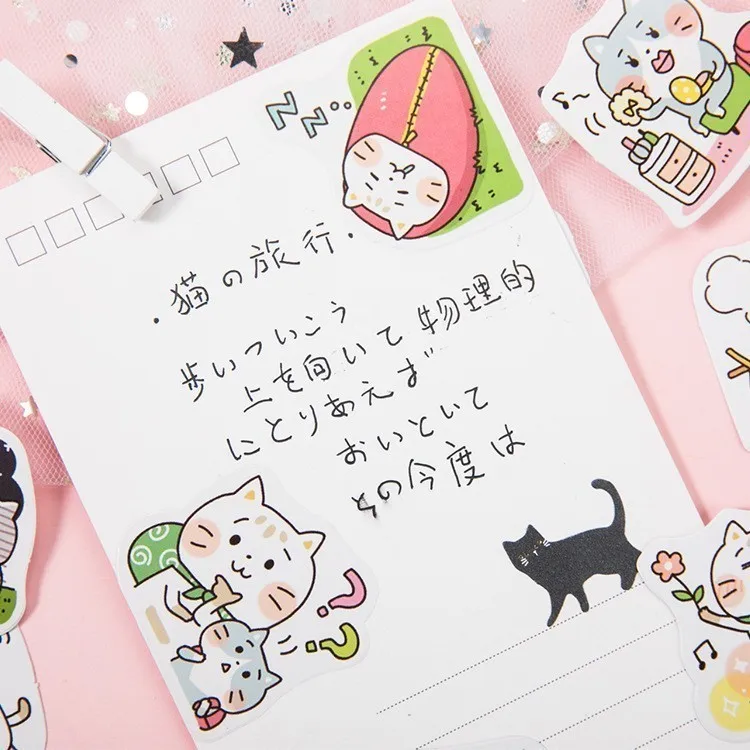 ZZ..
・猫の旅行・
歩いついこう
上を向いて物理的
にとりあえず
おいといて
その今度は
??